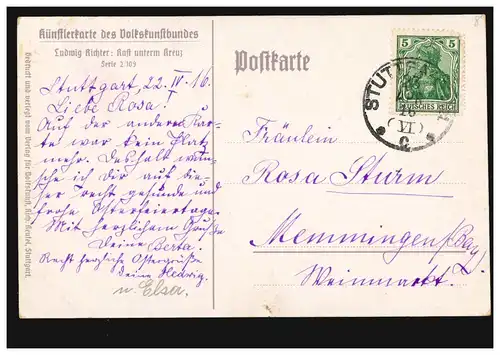 Künstlerkarte des Volkskunstbundes
Ludwig Richter: Rast unterm Kreuz
Serie 2 109
Stuttgart, 22. IV. 16.
Liebe Rosa!
Auf der anderen Kar-
te war kein Platz
mehr. Deshalb wün-
sche ich dir auf die-
ser recht gesunde und
frohe Osterfeiertage.
Mit herzlichem Gruße
Deine Berta.
Recht herzliche Ostergrüße
deine Hedwig.
u. Elsa.
Postkarte
5 5
DEUTSCHES REICH
STUTTG
VI
C
Fräulein
Rosa Sturm
Memmingen /Bay.
Weinmarkt.
Gedruckt und verlegt vom Verlag für Volkskunst, Rich. Keutel, Stuttgart.